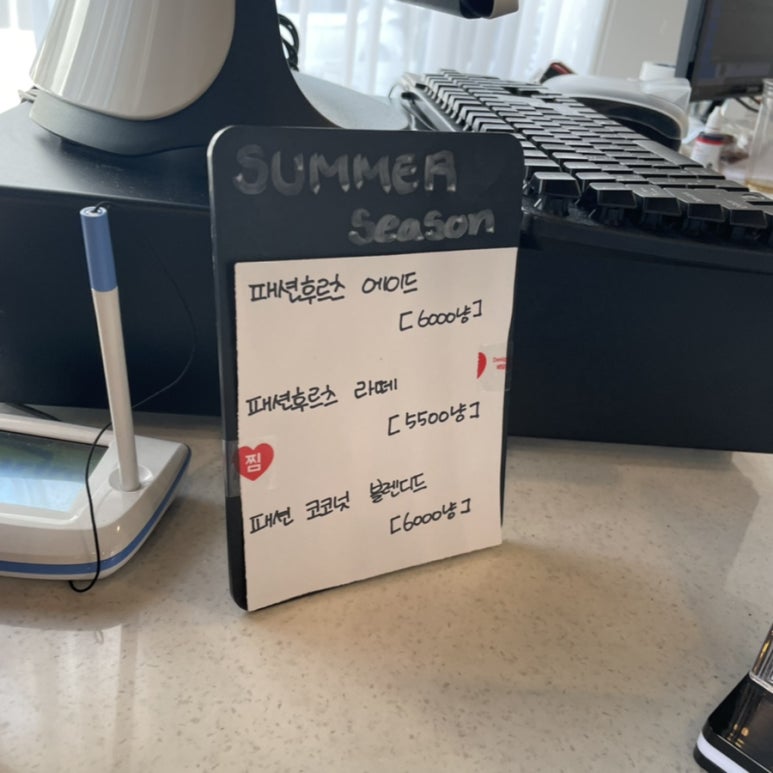 SUMMER
Season
패션후르츠 에이드
[6000냥]
패션후르츠 라떼
[5500냥]
찜
패션 코코넛 블렌디드
[6000냥]